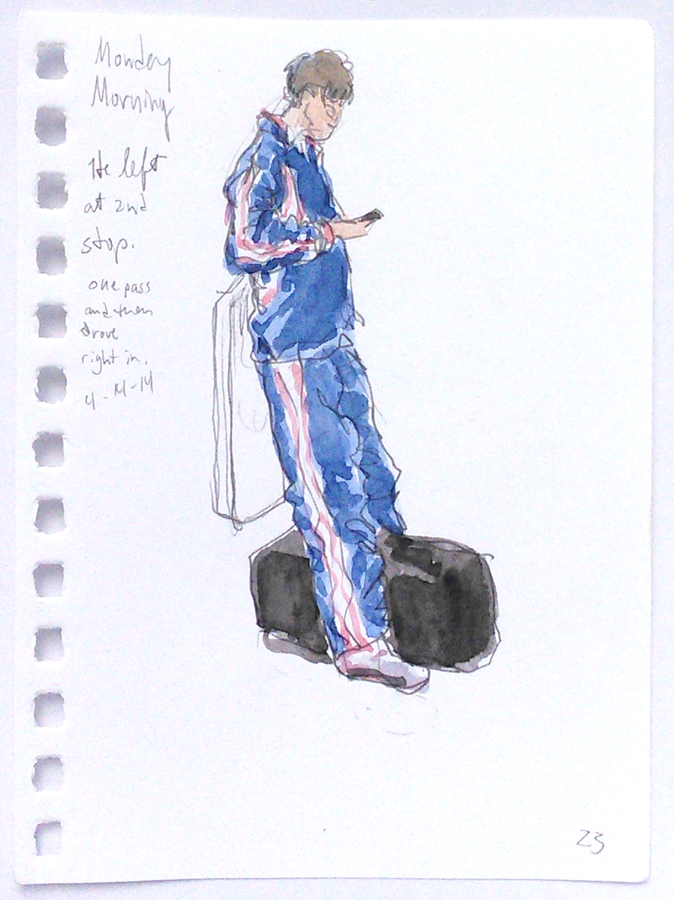 Monday
Morning
He left
at 2nd
stop.
one pass
and then
drove
right in.
4-14-14
23